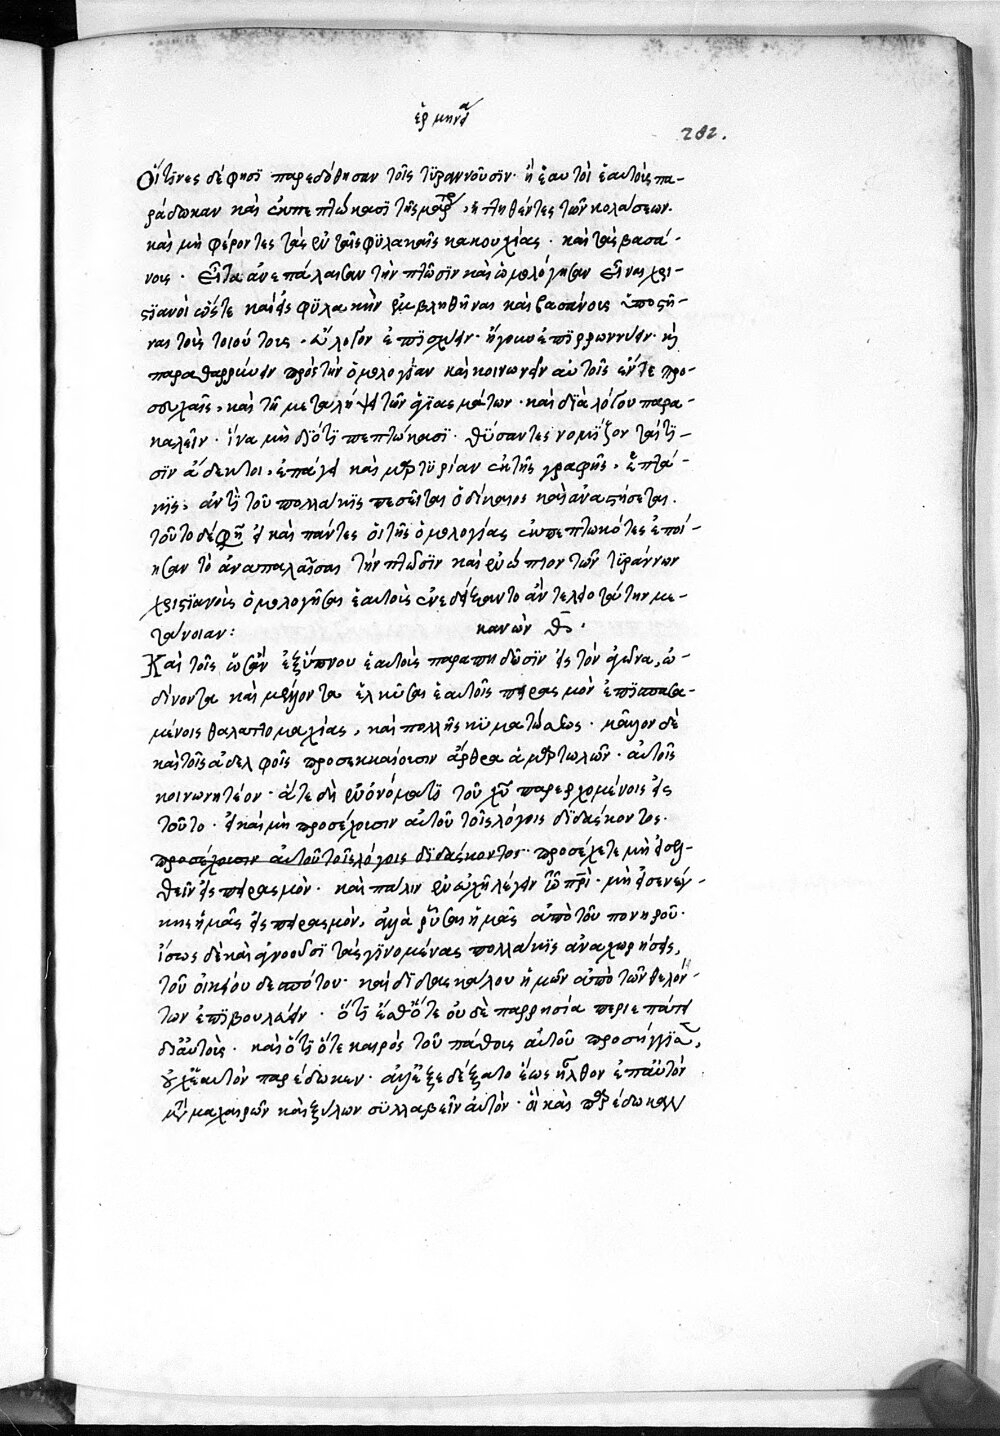 ἑρμηνεία
282.
Οἵτινες δέ φησι παρεδόθησαν τοῖς τυραννοῦσιν· ἢ ἑαυτοὶ ἑαυτοὺς πα-
ράδωκαν καὶ ἐκπεπτώκασι τῆς μαρτυρίας, ἡττηθέντες τῶν κολάσεων.
καὶ μὴ φέροντες τὰς ἐν ταῖς φυλακαῖς κακουχίας· καὶ τὰς βασά-
νους· εἶτα ἀνεπάλαισαν τὴν πτῶσιν καὶ ὡμολόγησαν εἶναι χρι-
στιανοὶ ὥστε καὶ εἰς φυλακὴν ἐμβληθῆναι καὶ βασάνοις ὑποστῆ-
ναι τοὺς τοιούτους· εὔλογον ἐπισχύειν· ἤγουν ἐπιρρωννύειν· καὶ
παραθαρρύνειν πρὸς τὴν ὁμολογίαν καὶ κοινωνεῖν αὐτοῖς ἔν τε προ-
σευχαῖς, καὶ τῇ μεταλήψει τῶν ἁγιασμάτων· καὶ διὰ λόγου παρα-
καλεῖν· ἵνα μὴ διότι πεπτώκασι· θύσαντες νομίζονται τι-
σὶν ἄδεκτοι, ἐπάγει καὶ μαρτυρίαν ἐκ τῆς γραφῆς, ἑπτά-
κις, ἀντὶ τοῦ πολλάκις πεσεῖται ὁ δίκαιος καὶ ἀναστήσεται.
τοῦτο δέ φησι εἰ καὶ πάντες οἱ τῆς ὁμολογίας ἐκπεπτωκότες ἐποί-
ησαν τὸ ἀναπαλαῖσαι τὴν πτῶσιν καὶ ἐνώπιον τῶν τυράννων
χριστιανοὺς ὁμολογῆσαι ἑαυτοὺς ἐνεδείξαντο ἂν τελειοτάτην με-
τάνοιαν: κανὼν θ̅·
Καὶ τοῖς ὡσὰν ἐξ ὕπνου ἑαυτοὺς παραπηδῶσιν εἰς τὸν ἀγῶνα, ὠ-
δίνοντα καὶ μέλλοντα ἑλκῦσαι ἑαυτοῖς πειρασμὸν ἐπισπασα-
μένοις θαλαττομαχίας, καὶ πολλῆς κυματώσεως· μᾶλλον δὲ
καὶ τοῖς ἀδελφοῖς προσεκκαίουσιν ἄνθρακα ἁμαρτωλῶν· αὐτοῖς
κοινωνητέον· ἅτε δὴ ἐν ὀνόματι τοῦ χῦ παρερχομένοις εἰς
τοῦτο· εἰ καὶ μὴ προσέχουσιν αὐτοῦ τοῖς λόγοις διδάσκοντος·
προσέχουσιν αὐτοῦ τοῖς λόγοις διδάσκοντος· προσέχετε μὴ εἰσελ-
θεῖν εἰς πειρασμόν· καὶ πάλιν ἐν εὐχῇ λέγειν τῷ πρὶ· μὴ εἰσενέγ-
κῃς ἡμᾶς εἰς πειρασμόν, ἀλλὰ ῥῦσαι ἡμᾶς ἀπὸ τοῦ πονηροῦ·
ἴσως δὲ καὶ ἀγνοοῦσι τὰς γινομένας πολλάκις ἀναχωρήσεις,
τοῦ οἰκείου δεσπότου· καὶ διδασκάλου ἡμῶν ἀπὸ τῶν θελόν-
των ἐπιβουλεύειν· ὅτι ἔσθ' ὅτε οὐδὲ παρρησίᾳ περιεπάτει
δι' αὐτούς· καὶ ὅτι ὅτε καιρὸς τοῦ πάθους αὐτοῦ προσήγγισεν,
οὐχ ἑαυτὸν παρέδωκεν· ἀλλ' ἐξεδέξατο ἕως ἦλθον ἐπ' αὐτὸν
μετὰ μαχαιρῶν καὶ ξύλων συλλαβεῖν αὐτόν· οἳ καὶ παρέδωκαν